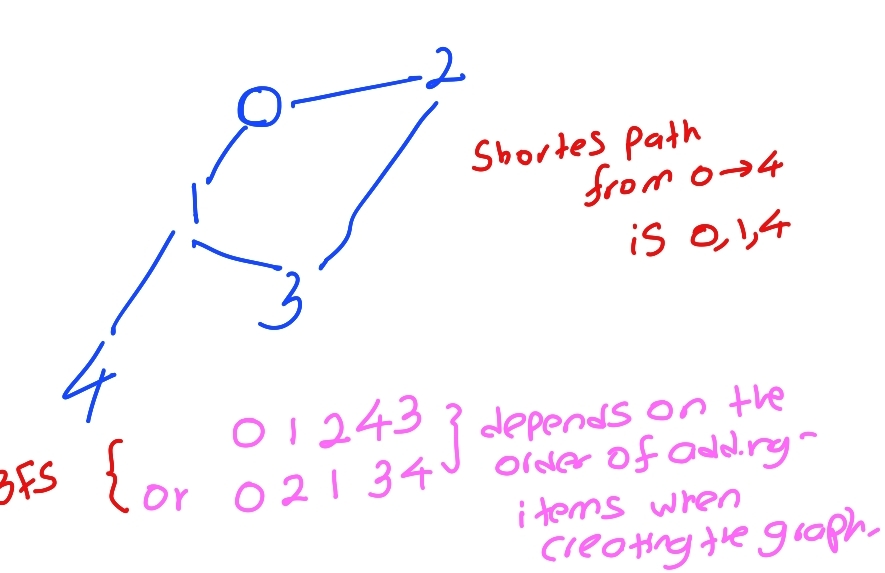 0
2
1
3
4
Shortes path
from 0→4
is 0,1,4
BFS { 0 1 2 4 3
or 0 2 1 3 4 } depends on the
order of adding
items when
creating the graph.